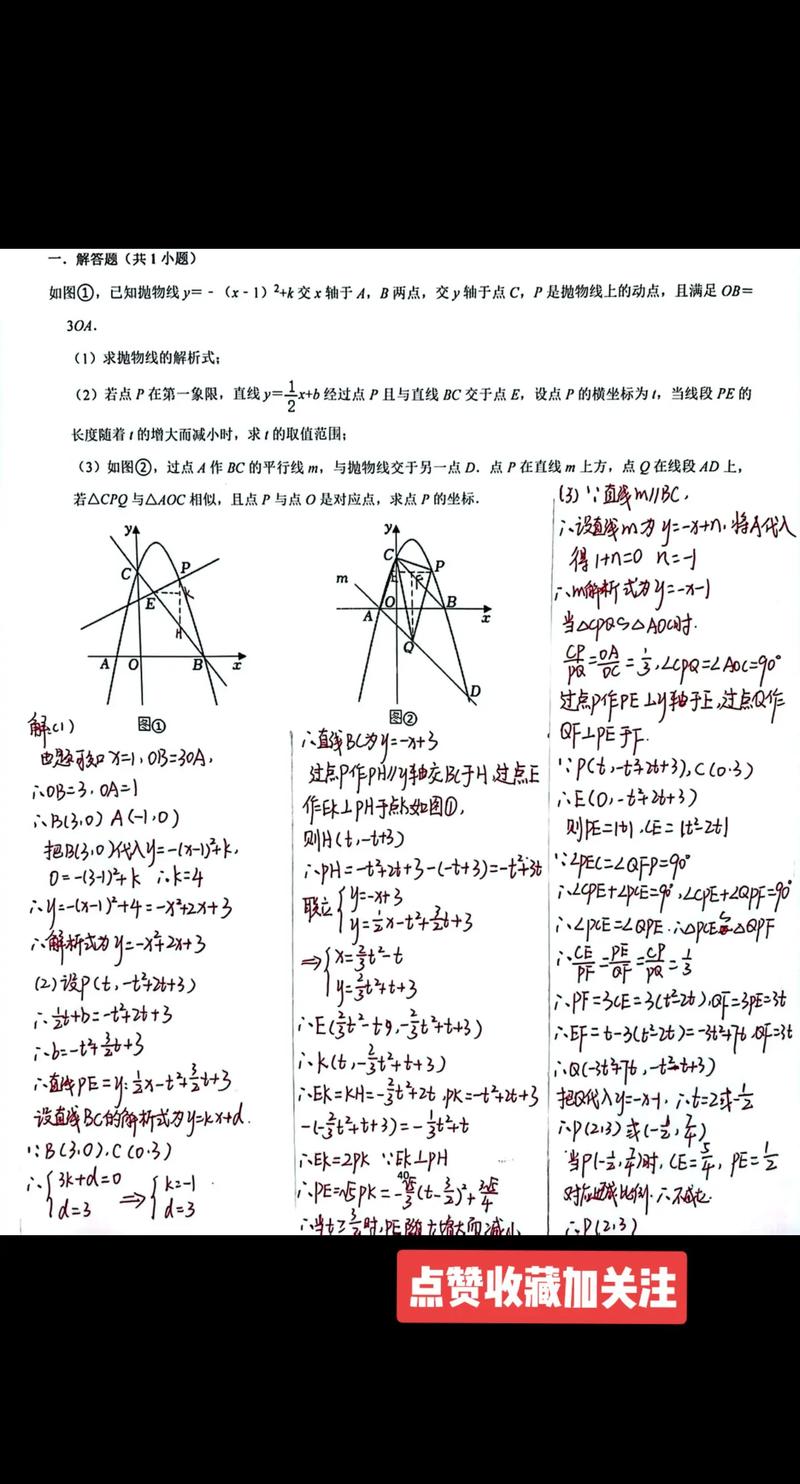 一．解答题（共1小题）
如图①，已知抛物线y=-（x-1）²+k交x轴于A，B两点，交y轴于点C，P是抛物线上的动点，且满足OB=
3OA．
（1）求抛物线的解析式；
（2）若点P在第一象限，直线y=1/2x+b经过点P且与直线BC交于点E，设点P的横坐标为t，当线段PE的
长度随着t的增大而减小时，求t的取值范围；
（3）如图②，过点A作BC的平行线m，与抛物线交于另一点D．点P在直线m上方，点Q在线段AD上，
若△CPQ与△AOC相似，且点P与点O是对应点，求点P的坐标．
y
C
P
E
K
H
A
O
B
x
图①
y
C
E
F
P
m
A
O
B
x
Q
D
图②
解:(1)
由题可知x=1,OB=3OA,
∴OB=3,OA=1
∴B(3,0) A(-1,0)
把B(3,0)代入y=-(x-1)²+k,
0=-(3-1)²+k ∴k=4
∴y=-(x-1)²+4=-x²+2x+3
∴解析式为y=-x²+2x+3
(2)设P(t,-t²+2t+3)
∴1/2t+b=-t²+2t+3
∴b=-t²+3/2t+3
∴直线PE=y=1/2x-t²+3/2t+3
设直线BC的解析式为y=kx+d.
∵B(3,0),C(0,3)
∴{3k+d=0 ⇒ {k=-1
d=3 d=3
∴直线BC为y=-x+3
过点P作PH//y轴交BC于H,过点E
作EK⊥PH于点K如图①,
则H(t,-t+3)
∴PH=-t²+2t+3-(-t+3)=-t²+3t
联立{y=-x+3
y=1/2x-t²+3/2t+3
⇒{x=2/3t²-t
y=-2/3t²+t+3
∴E(2/3t²-t,-2/3t²+t+3)
∴K(t,-2/3t²+t+3)
∴EK=KH=-2/3t²+2t,PK=-t²+2t+3
-(-2/3t²+t+3)=-1/3t²+t
∴EK=2PK ∵EK⊥PH
∴PE=√5PK=-√5/3(t-3/2)²+3√5/4
40
∴当t≥3/2时,PE随t增大而减小
(3)∵直线m//BC,
∴设直线m为y=-x+n,将A代入
得1+n=0 n=-1
∴m解析式为y=-x-1
当△CPQ∽△AOC时.
CP/PQ=OA/OC=1/3,∠CPQ=∠AOC=90°
过点P作PE⊥y轴于E,过点Q作
QF⊥PE于F.
∵P(t,-t²+2t+3),C(0,3)
∴E(0,-t²+2t+3)
则PE=|t|,CE=|t²-2t|
∵∠PEC=∠QFP=90°
∴∠CPE+∠PCE=90°,∠CPE+∠QPF=90°
∴∠PCE=∠QPE.∴△PCE∽△QPF
∴CE/PF=PE/QF=CP/PQ=1/3
∴PF=3CE=3(t²-2t),QF=3PE=3t
∴EF=t-3(t²-2t)=-3t²+7t,QF=3t
∴Q(-3t²+7t,-t²-t+3)
把Q代入y=-x-1,∴t=2或-1/2
∴P(2,3)或(-1/2,7/4)
当P(-1/2,7/4)时,CE=5/4,PE=1/2
对应边成比例.∴不成立.
∴P(2,3)
点赞收藏加关注